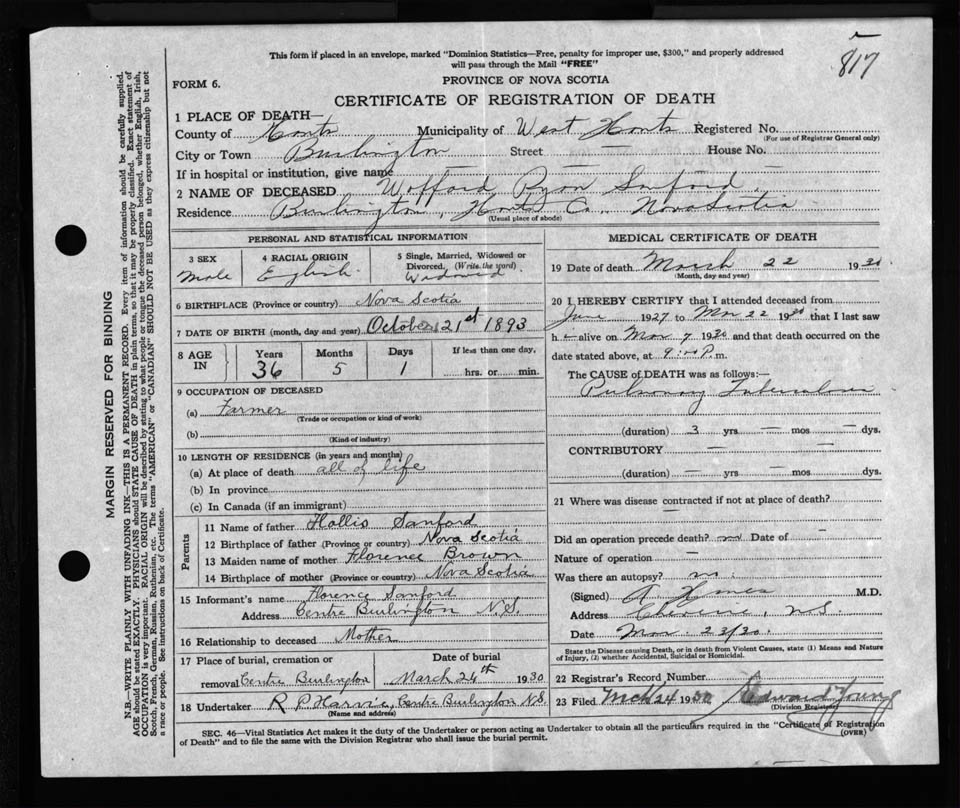 817
This form if placed in an envelope, marked "Dominion Statistics—Free, penalty for improper use, $300," and properly addressed
will pass through the Mail "FREE"
FORM 6.
PROVINCE OF NOVA SCOTIA
CERTIFICATE OF REGISTRATION OF DEATH
1 PLACE OF DEATH—
County of Hants Municipality of West Hants Registered No.
(For use of Registrar General only)
City or Town Burlington Street — House No. —
If in hospital or institution, give name —
2 NAME OF DECEASED Wofford Ryon Sanford
Residence Burlington, Hants Co., Nova Scotia
(Usual place of abode)
PERSONAL AND STATISTICAL INFORMATION
3 SEX Male
4 RACIAL ORIGIN English
5 Single, Married, Widowed or
Divorced, (Write the word)
Widowed
6 BIRTHPLACE (Province or country) Nova Scotia
7 DATE OF BIRTH (month, day and year) October 21st 1893
8 AGE IN
Years Months Days If less than one day,
36 5 1 hrs. or min.
9 OCCUPATION OF DECEASED
(a) Farmer
(Trade or occupation or kind of work)
(b)
(Kind of industry)
10 LENGTH OF RESIDENCE (in years and months)
(a) At place of death all of life
(b) In province
(c) In Canada (if an immigrant)
Parents
11 Name of father Hollis Sanford
12 Birthplace of father (Province or country) Nova Scotia
13 Maiden name of mother Florence Brown
14 Birthplace of mother (Province or country) Nova Scotia
15 Informant's name Florence Sanford
Address Centre Burlington N.S.
16 Relationship to deceased Mother
17 Place of burial, cremation or Date of burial
removal Centre Burlington March 24th 1930
18 Undertaker R P Harvie, Centre Burlington N.S.
(Name and address)
MEDICAL CERTIFICATE OF DEATH
19 Date of death March 22 1930
(Month, day and year)
20 I HEREBY CERTIFY that I attended deceased from
June 1927 to Mar 22 1930 that I last saw
h alive on Mar 7 1930 and that death occurred on the
date stated above, at 9:00 P.m.
The CAUSE of DEATH was as follows:—
Pulmonary Tuberculosis
(duration) 3 yrs — mos — dys.
CONTRIBUTORY — —
(duration) — yrs — mos — dys.
21 Where was disease contracted if not at place of death? —
Did an operation precede death? no Date of —
Nature of operation —
Was there an autopsy? no
(Signed) M.D.
Address N.S.
Date Mar. 23/30.
State the Disease causing Death, or in death from Violent Causes, state (1) Means and Nature
of Injury, (2) whether Accidental, Suicidal or Homicidal.
22 Registrar's Record Number
23 Filed Mch 24 1930 Edward Young
(Division Registrar)
SEC. 46—Vital Statistics Act makes it the duty of the Undertaker or person acting as Undertaker to obtain all the particulars required in the "Certificate of Registration
of Death" and to file the same with the Division Registrar who shall issue the burial permit.
(OVER)
MARGIN RESERVED FOR BINDING
N.B.—WRITE PLAINLY WITH UNFADING INK—THIS IS A PERMANENT RECORD. Every item of information should be carefully supplied.
AGE should be stated EXACTLY. PHYSICIANS should STATE CAUSE OF DEATH in plain terms, so that it may be properly classified. Exact statement of
OCCUPATION is very important. RACIAL ORIGIN will be described by stating to what people or tongue the deceased person belonged, whether English, Irish,
Scotch, French, German, Russian, Ruthenian, etc. The terms "AMERICAN" or "CANADIAN" SHOULD NOT BE USED as they express citizenship but not
a race or people. See instructions on back of Certificate.